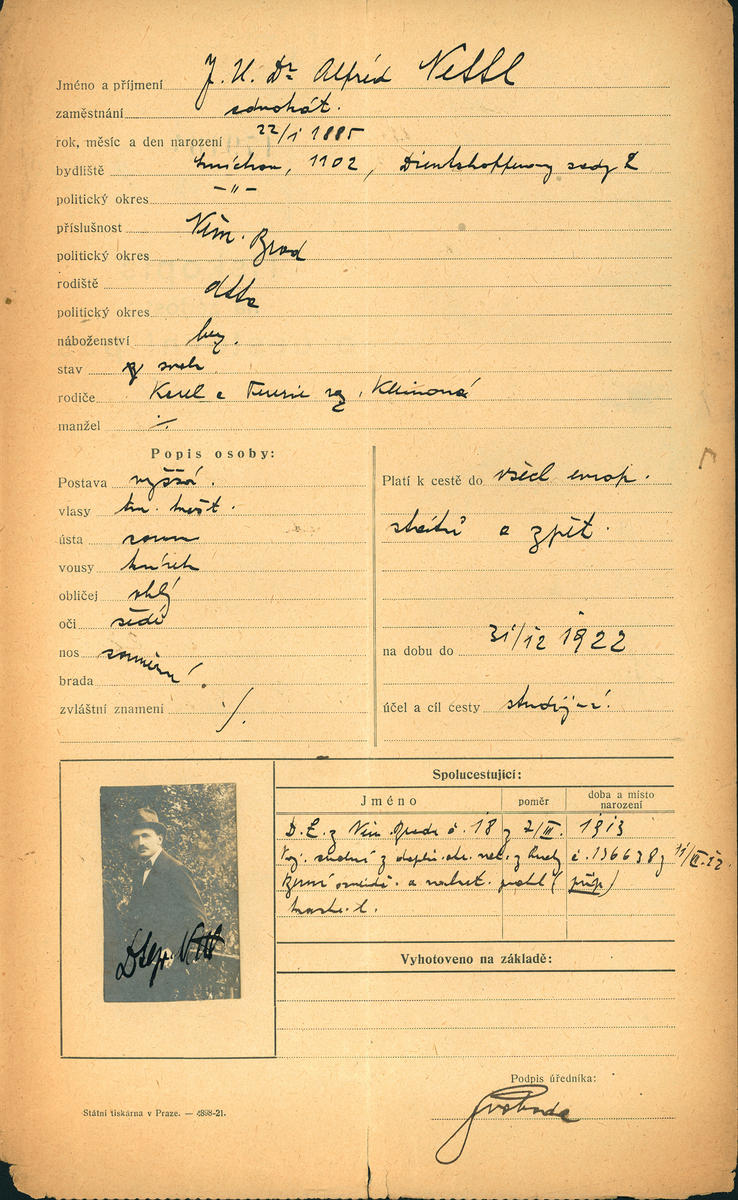 Jméno a příjmení J. U. Dr Alfréd Nettl
zaměstnání advokát.
rok, měsíc a den narození 22/1 1885
bydliště Smíchov, 1102, Dientzhofferovy sady 2
politický okres –"–
příslušnost Něm. Brod
politický okres
rodiště dtto
politický okres
náboženství bez.
stav svob
rodiče Karel a Teresie roz. Kleinová
manžel ./.
Popis osoby:
Postava vyšší.
vlasy tm.
ústa soum
vousy knírek
obličej ohlý
oči šedé
nos souměrný
brada
zvláštní znamení ./.
Platí k cestě do všech evrop.
států a zpět.
na dobu do 31/12 1922
účel a cíl cesty studijní.
Spolucestující:
Jméno poměr doba a místo narození
D. L. z Něm. Brodu č. 18 z 7/III. 1913
č. 136638 z
a
Vyhotoveno na základě:
Podpis úředníka:
Svoboda
Státní tiskárna v Praze. — 4898-21.